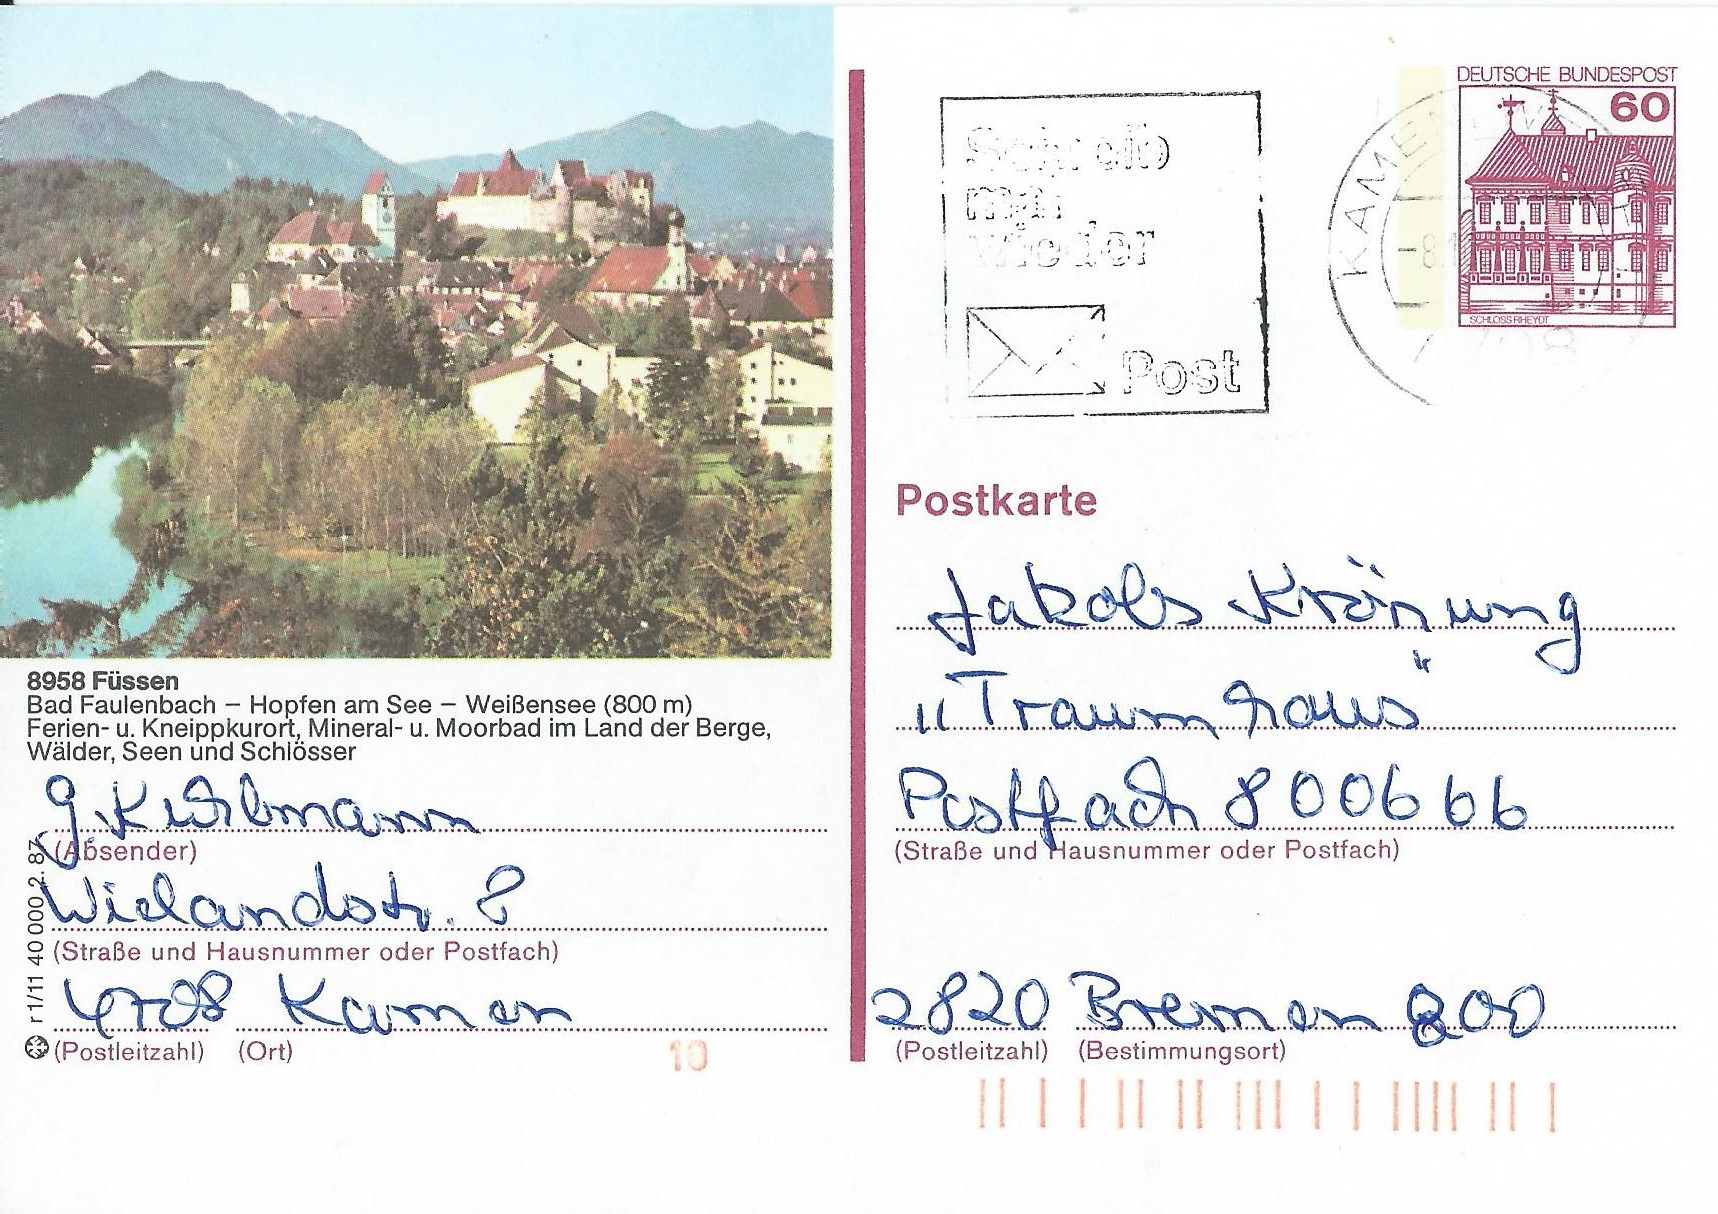 8958 Füssen
Bad Faulenbach – Hopfen am See – Weißensee (800 m)
Ferien- u. Kneippkurort, Mineral- u. Moorbad im Land der Berge,
Wälder, Seen und Schlösser
G. Kuhlmann
(Absender)
Wielandstr. 8
(Straße und Hausnummer oder Postfach)
4708 Kamen
(Postleitzahl) (Ort)
r 1/11 40 000 2. 87
10
Schreib
mal
wieder
Post
DEUTSCHE BUNDESPOST
60
SCHLOSS RHEYDT
KAMEN
-8.1
4708
Postkarte
Jakobs Krönung
"Traumhaus"
Postfach 800666
(Straße und Hausnummer oder Postfach)
2820 Bremen 800
(Postleitzahl) (Bestimmungsort)